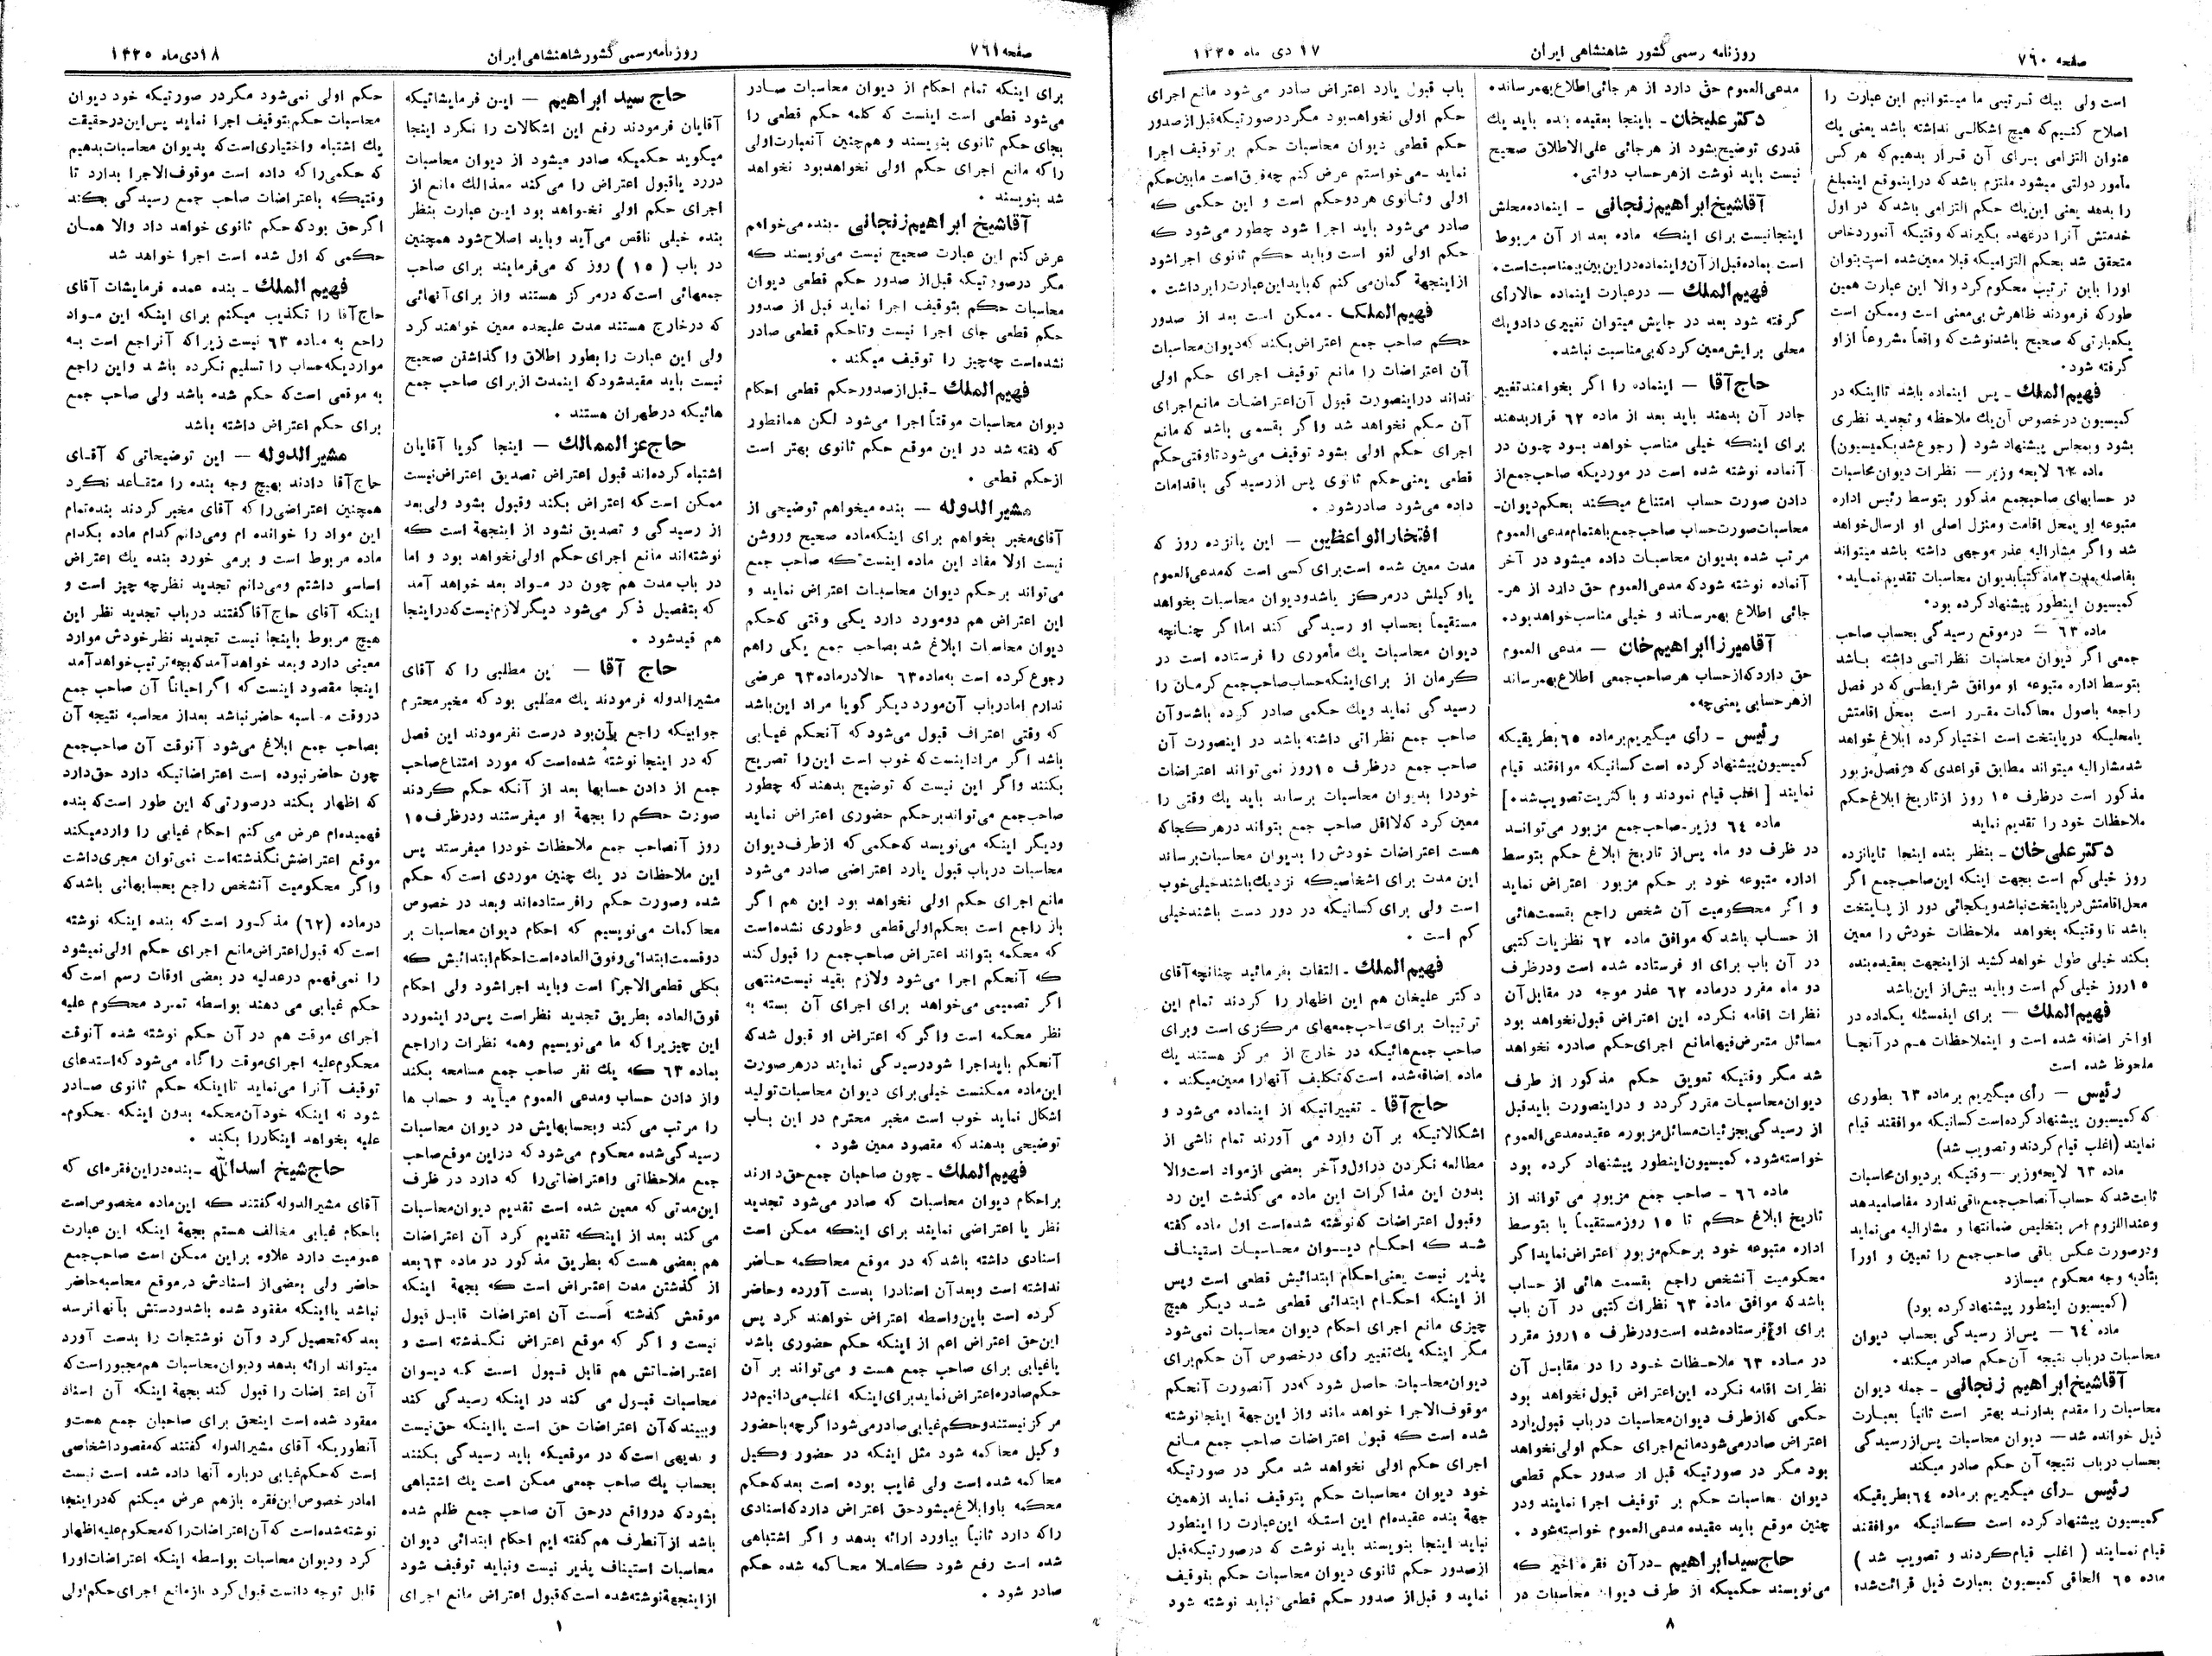 صفحه ۷۶۰
روزنامه رسمی کشور شاهنشاهی ایران
۱۷ دی ماه ۱۳۲۵
است ولی بیك ترتیبی ما میتوانیم این عبارت را
اصلاح کنیم که هیچ اشکالی نداشته باشد یعنی یك
عنوان التزامی برای آن قرار بدهیم که هر کس
مأمور دولتی میشود ملتزم باشد که در اینموقع اینمبلغ
را بدهد یعنی این یك حکم التزامی باشد که در اول
خدمتش آنرا در عهده بگیرند که وقتیکه آنمورد خاص
متحقق شد بحکم التزامیکه قبلا معین شده است بتوان
اورا باین ترتیب محکوم کرد والا این عبارت همین
طور که فرمودند ظاهرش بی معنی است و ممکن است
یکعبارتی که صحیح باشد نوشت که واقعاً مشروعاً از او
گرفته شود.
فهیم الملك ـ پس اینماده باشد تا اینکه در
کمیسون در خصوص آن یك ملاحظه و تجدید نظری
بشود و بمجلس پیشنهاد شود ( رجوع شد بکمیسون)
ماده ۶۲ لایحه وزیر — نظرات دیوان محاسبات
در حسابهای صاحبجمع مذکور بتوسط رئیس اداره
متبوعه او بمحل اقامت ومنزل اصلی او ارسال خواهد
شد واگر مشارالیه عذر موجهی داشته باشد میتواند
بفاصله مدت ۲ ماه کتباً بدیوان محاسبات تقدیم نماید.
کمیسون اینطور پیشنهاد کرده بود.
ماده ۶۳ — در موقع رسیدگی بحساب صاحب
جمعی اگر دیوان محاسبات نظراتی داشته باشد
بتوسط اداره متبوعه او موافق شرایطی که در فصل
راجعه باصول محاکمات مقرر است بمحل اقامتش
یامحلیکه در پایتخت است اختیار کرده ابلاغ خواهد
شد مشارالیه میتواند مطابق قواعدی که در فصل مزبور
مذکور است در ظرف ۱۵ روز از تاریخ ابلاغ حکم
ملاحظات خود را تقدیم نماید
دکتر علی خان ـ بنظر بنده اینجا تا پانزده
روز خیلی کم است بجهت اینکه این صاحب جمع اگر
محل اقامتش در پایتخت نباشد و یکجائی دور از پایتخت
باشد تا وقتیکه بخواهد ملاحظات خودش را معین
بکند خیلی طول خواهد کشید از اینجهت بعقیده بنده
۱۵ روز خیلی کم است و باید بیش از این باشد
فهیم الملك — برای اینمسئله یکماده در
اواخر اضافه شده است و اینملاحظات هم در آنجا
ملحوظ شده است
رئیس — رأی میگیریم بر ماده ۶۳ بطوری
که کمیسون پیشنهاد کرده است کسانیکه موافقند قیام
نمایند (اغلب قیام کردند و تصویب شد)
ماده ۶۳ لایحه وزیر — وقتیکه بر دیوان محاسبات
ثابت شد که حساب آنصاحب جمع باقی ندارد مفاصا میدهد
وعنداللزوم امر بتخلیص ضمانتها و مشارالیه می نماید
ودرصورت عکس باقی صاحب جمع را تعیین و اورا
بتأدیه وجه محکوم میسازد
(کمیسون اینطور پیشنهاد کرده بود)
ماده ۶۴ — پس از رسیدگی بحساب دیوان
محاسبات در باب نتیجه آن حکم صادر میکند.
آقا شیخ ابراهیم زنجانی ـ جمله دیوان
محاسبات را مقدم بدارند بهتر است ثانیاً بعبارت
ذیل خوانده شد — دیوان محاسبات پس از رسیدگی
بحساب در باب نتیجه آن حکم صادر میکند
رئیس ـ رأی میگیریم بر ماده ۶۴ بطریقیکه
کمیسون پیشنهاد کرده است کسانیکه موافقند
قیام نمایند ( اغلب قیام کردند و تصویب شد )
ماده ۶۵ الحاقی کمیسون بعبارت ذیل قرائت شد:
مدعی العموم حق دارد از هر جائی اطلاع بهمرساند.
دکتر علیخان ـ باینجا بعقیده بنده باید یك
قدری توضیح بشود از هر جائی علی الاطلاق صحیح
نیست باید نوشت از هر حساب دولتی.
آقا شیخ ابراهیم زنجانی ـ اینماده محلش
اینجا نیست برای اینکه ماده بعد از آن مربوط
است بماده قبل از آن و اینماده در این بین بی مناسبت است.
فهیم الملك — در عبارت اینماده حالا رأی
گرفته شود بعد در جایش میتوان تغییری داد و یك
محلی برایش معین کرد که بی مناسبت نباشد.
حاج آقا — اینماده را اگر بخواهند تغییر
جا در آن بدهند باید بعد از ماده ۶۲ قرار بدهند
برای اینکه خیلی مناسب خواهد بود چون در
آنماده نوشته شده است در موردیکه صاحب جمع از
دادن صورت حساب امتناع میکند بحکم دیوان-
محاسبات صورت حساب صاحب جمع باهتمام مدعی العموم
مرتب شده بدیوان محاسبات داده میشود در آخر
آنماده نوشته شود که مدعی العموم حق دارد از هر-
جائی اطلاع بهمرساند و خیلی مناسب خواهد بود.
آقامیرزا ابراهیم خان — مدعی العموم
حق دارد که از حساب هر صاحب جمعی اطلاع بهمرساند
از هر حسابی یعنی چه.
رئیس ـ رأی میگیریم بر ماده ۶۵ بطریقیکه
کمیسون پیشنهاد کرده است کسانیکه موافقند قیام
نمایند [ اغلب قیام نمودند و باکثریت تصویب شد. ]
ماده ۶۴ وزیر ـ صاحب جمع مزبور می تواند
در ظرف دو ماه پس از تاریخ ابلاغ حکم بتوسط
اداره متبوعه خود بر حکم مزبور اعتراض نماید
و اگر محکومیت آن شخص راجع بقسمت هائی
از حساب باشد که موافق ماده ۶۲ نظریات کتبی
در آن باب برای او فرستاده شده است ودر ظرف
دو ماه مقرر در ماده ۶۲ عذر موجه در مقابل آن
نظرات اقامه نکرده این اعتراض قبول نخواهد بود
مسائل متعرض فیها مانع اجرای حکم صادره نخواهد
شد مگر وقتیکه تعویق حکم مذکور از طرف
دیوان محاسبات مقرر گردد و در اینصورت باید قبل
از رسیدگی بجزئیات مسائل مزبوره عقیده مدعی العموم
خواسته شود. کمیسون اینطور پیشنهاد کرده بود
ماده ۶۶ ـ صاحب جمع مزبور می تواند از
تاریخ ابلاغ حکم تا ۱۵ روز مستقیماً یا بتوسط
اداره متبوعه خود بر حکم مزبور اعتراض نماید اگر
محکومیت آنشخص راجع بقسمت هائی از حساب
باشد که موافق ماده ۶۳ نظرات کتبی در آن باب
برای او فرستاده شده است ودر ظرف ۱۵ روز مقرر
در ماده ۶۳ ملاحظات خود را در مقابل آن
نظرات اقامه نکرده این اعتراض قبول نخواهد بود
حکمی که از طرف دیوان محاسبات در باب قبول یارد
اعتراض صادر می شود مانع اجرای حکم اولی نخواهد
بود مگر در صورتیکه قبل از صدور حکم قطعی
دیوان محاسبات حکم بر توقیف اجرا نمایند ودر
چنین موقع باید عقیده مدعی العموم خواسته شود .
حاج سید ابراهیم ـ در آن فقره اخیر که
می نویسند حکمیکه از طرف دیوان محاسبات در
باب قبول یارد اعتراض صادر می شود مانع اجرای
حکم اولی نخواهد بود مگر در صورتیکه قبل از صدور
حکم قطعی دیوان محاسبات حکم بر توقیف اجرا
نماید ـ می خواستم عرض کنم چه فرق است ما بین حکم
اولی وثانوی هر دو حکم است و این حکمی که
صادر می شود باید اجرا شود چطور می شود که
حکم اولی لغو است وباید حکم ثانوی اجرا شود
از اینجهة گمان می کنم که باید این عبارت را برداشت .
فهیم الملك ـ ممکن است بعد از صدور
حکم صاحب جمع اعتراض بکند که دیوان محاسبات
آن اعتراضات را مانع توقیف اجرای حکم اولی
نداند در اینصورت قبول آن اعتراضات مانع اجرای
آن حکم نخواهد شد واگر بقسمی باشد که مانع
اجرای حکم اولی بشود توقیف می شود تا وقتی حکم
قطعی یعنی حکم ثانوی پس از رسیدگی باقدامات
داده می شود صادر شود .
افتخار الواعظین — این پانزده روز که
مدت معین شده است برای کسی است که مدعی العموم
یا وکیلش در مرکز باشد ودیوان محاسبات بخواهد
مستقیماً بحساب او رسیدگی کند اما اگر چنانچه
دیوان محاسبات یك مأموری را فرستاده است در
کرمان از برای اینکه حساب صاحب جمع کرمان را
رسیدگی نماید و یك حکمی صادر کرده باشد و آن
صاحب جمع نظراتی داشته باشد در اینصورت آن
صاحب جمع در ظرف ۱۵ روز نمی تواند اعتراضات
خود را بدیوان محاسبات برساند باید یك وقتی را
معین کرد که لااقل صاحب جمع بتواند در هر کجا که
هست اعتراضات خودش را بدیوان محاسبات برساند
این مدت برای اشخاصیکه نزدیك باشند خیلی خوب
است ولی برای کسانیکه در دور دست باشند خیلی
کم است .
فهیم الملك ـ التفات بفرمائید چنانچه آقای
دکتر علیخان هم این اظهار را کردند تمام این
ترتیبات برای صاحب جمعهای مرکزی است وبرای
صاحب جمع هائیکه در خارج از مرکز هستند یك
ماده اضافه شده است که تکلیف آنها را معین میکند .
حاج آقا ـ تغییراتیکه از اینماده می شود و
اشکالاتیکه بر آن وارد می آورند تمام ناشی از
مطالعه نکردن در اول و آخر بعضی از مواد است والا
بدون این مذاکرات این ماده می گذشت این رد
وقبول اعتراضات که نوشته شده است اول ماده گفته
شد که احکام دیوان محاسبات استیناف
پذیر نیست یعنی احکام ابتدائیش قطعی است وپس
از اینکه احکام ابتدائی قطعی شد دیگر هیچ
چیزی مانع اجرای احکام دیوان محاسبات نمی شود
مگر اینکه یك تغییر رأی در خصوص آن حکم برای
دیوان محاسبات حاصل شود که در آنصورت آنحکم
موقوف الاجرا خواهد ماند واز این جهة اینجا نوشته
شده است که قبول اعتراضات صاحب جمع مانع
اجرای حکم اولی نخواهد شد مگر در صورتیکه
خود دیوان محاسبات حکم بتوقیف نماید از همین
جهة بنده عقیده ام این است که این عبارت را اینطور
نباید اینجا بنویسند باید نوشت که در صورتیکه قبل
از صدور حکم ثانوی دیوان محاسبات حکم بتوقیف
نماید و قبل از صدور حکم قطعی نباید نوشته شود
۸
صفحه ۷۶۱
روزنامه رسمی کشور شاهنشاهی ایران
۱۸ دی ماه ۱۳۲۵
برای اینکه تمام احکام از دیوان محاسبات صادر
می شود قطعی است اینست که کلمه حکم قطعی را
بجای حکم ثانوی بنویسند و هم چنین آنعبارت اولی
را که مانع اجرای حکم اولی نخواهد بود نخواهد
شد بنویسند .
آقا شیخ ابراهیم زنجانی ـ بنده می خواهم
عرض کنم این عبارت صحیح نیست می نویسند که
مگر در صورتیکه قبل از صدور حکم قطعی دیوان
محاسبات حکم بتوقیف اجرا نماید قبل از صدور
حکم قطعی جای اجرا نیست وتا حکم قطعی صادر
نشده است چه چیز را توقیف میکند .
فهیم الملك ـ قبل از صدور حکم قطعی احکام
دیوان محاسبات موقتاً اجرا می شود لکن همانطور
که گفته شد در این موقع حکم ثانوی بهتر است
از حکم قطعی .
مشیر الدوله — بنده میخواهم توضیحی از
آقای مخبر بخواهم برای اینکه ماده صحیح وروشن
نیست اولا مفاد این ماده اینست که صاحب جمع
می تواند بر حکم دیوان محاسبات اعتراض نماید و
این اعتراض هم دو مورد دارد یکی وقتی که حکم
دیوان محاسبات ابلاغ شد بصاحب جمع یکی راهم
رجوع کرده است به ماده ۶۳ حالا در ماده ۶۳ عرضی
ندارم اما در باب آن مورد دیگر گویا مراد این باشد
که وقتی اعتراف قبول می شود که آنحکم غیابی
باشد اگر مراد اینست که خوب است این را تصریح
بکنند واگر این نیست که توضیح بدهند که چطور
صاحب جمع می تواند بر حکم حضوری اعتراض نماید
ودیگر اینکه می نویسد که حکمی که از طرف دیوان
محاسبات در باب قبول یارد اعتراضی صادر می شود
مانع اجرای حکم اولی نخواهد بود این هم اگر
باز راجع است بحکم اولی قطعی وطوری نشده است
که محکمه بتواند اعتراض صاحب جمع را قبول کند
که آنحکم اجرا می شود ولازم بقید نیست منتهی
اگر تصمیمی می خواهد برای اجرای آن بسته به
نظر محکمه است واگر که اعتراض او قبول شد که
آنحکم باید اجرا شود رسیدگی نمایند در هر صورت
این ماده ممکنست خیلی برای دیوان محاسبات تولید
اشکال نماید خوب است مخبر محترم در این باب
توضیحی بدهند که مقصود معین شود .
فهیم الملك ـ چون صاحبان جمع حق دارند
بر احکام دیوان محاسبات که صادر می شود تجدید
نظر یا اعتراضی نمایند برای اینکه ممکن است
اسنادی داشته باشد که در موقع محاکمه حاضر
نداشته است وبعد آن اسناد را بدست آورده وحاضر
کرده است باین واسطه اعتراض خواهند کرد پس
این حق اعتراض اعم از اینکه حکم حضوری باشد
یا غیابی برای صاحب جمع هست و می تواند بر آن
حکم صادره اعتراض نماید برای اینکه اغلب می دانیم در
مرکز نیستند و حکم غیابی صادر می شود اگر چه باحضور
وکیل محاکمه شود مثل اینکه در حضور وکیل
محاکمه شده است ولی غایب بوده است بعد که حکم
محکمه باو ابلاغ میشود حق اعتراض دارد که اسنادی
را که دارد ثانیاً بیاورد ارائه بدهد و اگر اشتباهی
شده است رفع شود کاملا محاکمه شده حکم
صادر شود .
حاج سید ابراهیم — این فرمایشاتیکه
آقایان فرمودند رفع این اشکالات را نکرد اینجا
میگوید حکمیکه صادر میشود از دیوان محاسبات
در رد یاقبول اعتراض را می کند معذالك مانع از
اجرای حکم اولی نخواهد بود این عبارت بنظر
بنده خیلی ناقص می آید وباید اصلاح شود همچنین
در باب ( ۱۵ ) روز که می فرمایند برای صاحب
جمعهائی است که در مرکز هستند واز برای آنهائی
که در خارج هستند مدت علیحده معین خواهند کرد
ولی این عبارت را بطور اطلاق وا گذاشتن صحیح
نیست باید مقید شود که اینمدت از برای صاحب جمع
هائیکه در طهران هستند .
حاج عز الممالك — اینجا گویا آقایان
اشتباه کرده اند قبول اعتراض تصدیق اعتراض نیست
ممکن است که اعتراض بکند وقبول بشود ولی بعد
از رسیدگی و تصدیق نشود از اینجهة است که
نوشته اند مانع اجرای حکم اولی نخواهد بود و اما
در باب مدت هم چون در مواد بعد خواهد آمد
که بتفصیل ذکر می شود دیگر لازم نیست که در اینجا
هم قید شود .
حاج آقا — این مطلبی را که آقای
مشیر الدوله فرمودند یك مطلبی بود که مخبر محترم
جوابیکه راجع بآن بود درست نفرمودند این فصل
که در اینجا نوشته شده است که مورد امتناع صاحب
جمع از دادن حسابها بعد از آنکه حکم کردند
صورت حکم را بجهة او میفرستند ودر ظرف ۱۵
روز آنصاحب جمع ملاحظات خودرا میفرستد پس
این ملاحظات در یك چنین موردی است که حکم
شده وصورت حکم را فرستاده اند وبعد در خصوص
محاکمات می نویسیم که احکام دیوان محاسبات بر
دو قسمت ابتدائی و فوق العاده است احکام ابتدائیش که
بکلی قطعی الاجرا است وباید اجرا شود ولی احکام
فوق العاده بطریق تجدید نظر است پس در اینمورد
این چیزیرا که ما می نویسیم وهمه نظرات را راجع
بماده ۶۳ که یك نفر صاحب جمع مسامحه بکند
واز دادن حساب ومدعی العموم میاید و حساب ها
را مرتب می کند وبحسابهایش در دیوان محاسبات
رسیدگی شده محکوم می شود که در این موقع صاحب
جمع ملاحظاتی واعتراضاتی را که دارد در ظرف
این مدتی که معین شده است تقدیم دیوان محاسبات
می کند بعد از اینکه تقدیم کرد آن اعتراضات
هم بعضی هست که بطریق مذکور در ماده ۶۳ بعد
از گذشتن مدت اعتراض است که بجهة اینکه
موقعش گذشته است آن اعتراضات قابل قبول
نیست و اگر که موقع اعتراض نگذشته است و
اعتراضاتش هم قابل قبول است که دیوان
محاسبات قبول می کند در اینکه رسیدگی کند
و ببیند که آن اعتراضات حق است یا اینکه حق نیست
و بدیهی است که در موقعیکه باید رسیدگی بکنند
بحساب یك صاحب جمعی ممکن است یك اشتباهی
بشود که در واقع در حق آن صاحب جمع ظلم شده
باشد از آنطرف هم گفته ایم احکام ابتدائی دیوان
محاسبات استیناف پذیر نیست ونباید توقیف شود
از اینجهة نوشته شده است که قبول اعتراض مانع اجرای
حکم اولی نمی شود مگر در صورتیکه خود دیوان
محاسبات حکم بتوقیف اجرا نماید پس این در حقیقت
یك اشتباه و اختیاری است که بدیوان محاسبات بدهیم
که حکمی را که داده است موقوف الاجرا بدارد تا
وقتیکه باعتراضات صاحب جمع رسیدگی بکند
اگر حق بود که حکم ثانوی خواهد داد والا همان
حکمی که اول شده است اجرا خواهد شد
فهیم الملك ـ بنده عمده فرمایشات آقای
حاج آقا را تکذیب میکنم برای اینکه این مواد
راجع به ماده ۶۳ نیست زیرا که آن راجع است به
مواردیکه حساب را تسلیم نکرده باشد واین راجع
به موقعی است که حکم شده باشد ولی صاحب جمع
برای حکم اعتراض داشته باشد
مشیر الدوله — این توضیحاتی که آقای
حاج آقا دادند بهیچ وجه بنده را متقاعد نکرد
همچنین اعتراضی را که آقای مخبر کردند بنده تمام
این مواد را خوانده ام ومی دانم کدام ماده بکدام
ماده مربوط است و برمی خورد بنده یك اعتراض
اساسی داشتم ومی دانم تجدید نظر چه چیز است و
اینکه آقای حاج آقا گفتند در باب تجدید نظر این
هیچ مربوط باینجا نیست تجدید نظر خودش موارد
معینی دارد وبعد خواهد آمد که بچه ترتیب خواهد آمد
اینجا مقصود اینست که اگر احیاناً آن صاحب جمع
در وقت محاسبه حاضر نباشد بعد از محاسبه نتیجه آن
بصاحب جمع ابلاغ می شود آنوقت آن صاحب جمع
چون حاضر نبوده است اعتراضاتیکه دارد حق دارد
که اظهار بکند در صورتی که این طور است که بنده
فهمیده ام عرض می کنم احکام غیابی را وارد میکند
موقع اعتراضش نگذشته است نمی توان مجری داشت
واگر محکومیت آنشخص راجع بحسابهائی باشد که
در ماده (۶۲) مذکور است که بنده اینکه نوشته
است که قبول اعتراض مانع اجرای حکم اولی نمیشود
را نمی فهمم در عدلیه در بعضی اوقات رسم است که
حکم غیابی می دهند بواسطه تمرد محکوم علیه
اجرای موقت هم در آن حکم نوشته شده آنوقت
محکوم علیه اجرای موقت را گاه می شود که استدعای
توقیف آنرا می نماید تا اینکه حکم ثانوی صادر
شود نه اینکه خود آن محکمه بدون اینکه محکوم-
علیه بخواهد اینکار را بکند .
حاج شیخ اسدالله ـ بنده در این فقره ای که
آقای مشیر الدوله گفتند که این ماده مخصوص است
باحکام غیابی مخالف هستم بجهة اینکه این عبارت
عمومیت دارد علاوه بر این ممکن است صاحب جمع
حاضر ولی بعضی از اسنادش در موقع محاسبه حاضر
نباشد یا اینکه مفقود شده باشد ودستش بآنها نرسد
بعد که تحصیل کرد و آن نوشتجات را بدست آورد
میتواند ارائه بدهد ودیوان محاسبات هم مجبور است که
آن اعتراضات را قبول کند بجهة اینکه آن اسناد
مفقود شده است اینحق برای صاحبان جمع هست و
آنطوریکه آقای مشیر الدوله گفتند که مقصود اشخاصی
است که حکم غیابی درباره آنها داده شده است نیست
اما در خصوص این فقره بازهم عرض میکنم که در اینجا
نوشته شده است که آن اعتراضات را که محکوم علیه اظهار
کرد ودیوان محاسبات بواسطه اینکه اعتراضات اورا
قابل توجه دانست قبول کرد باز مانع اجرای حکم اولی
۱